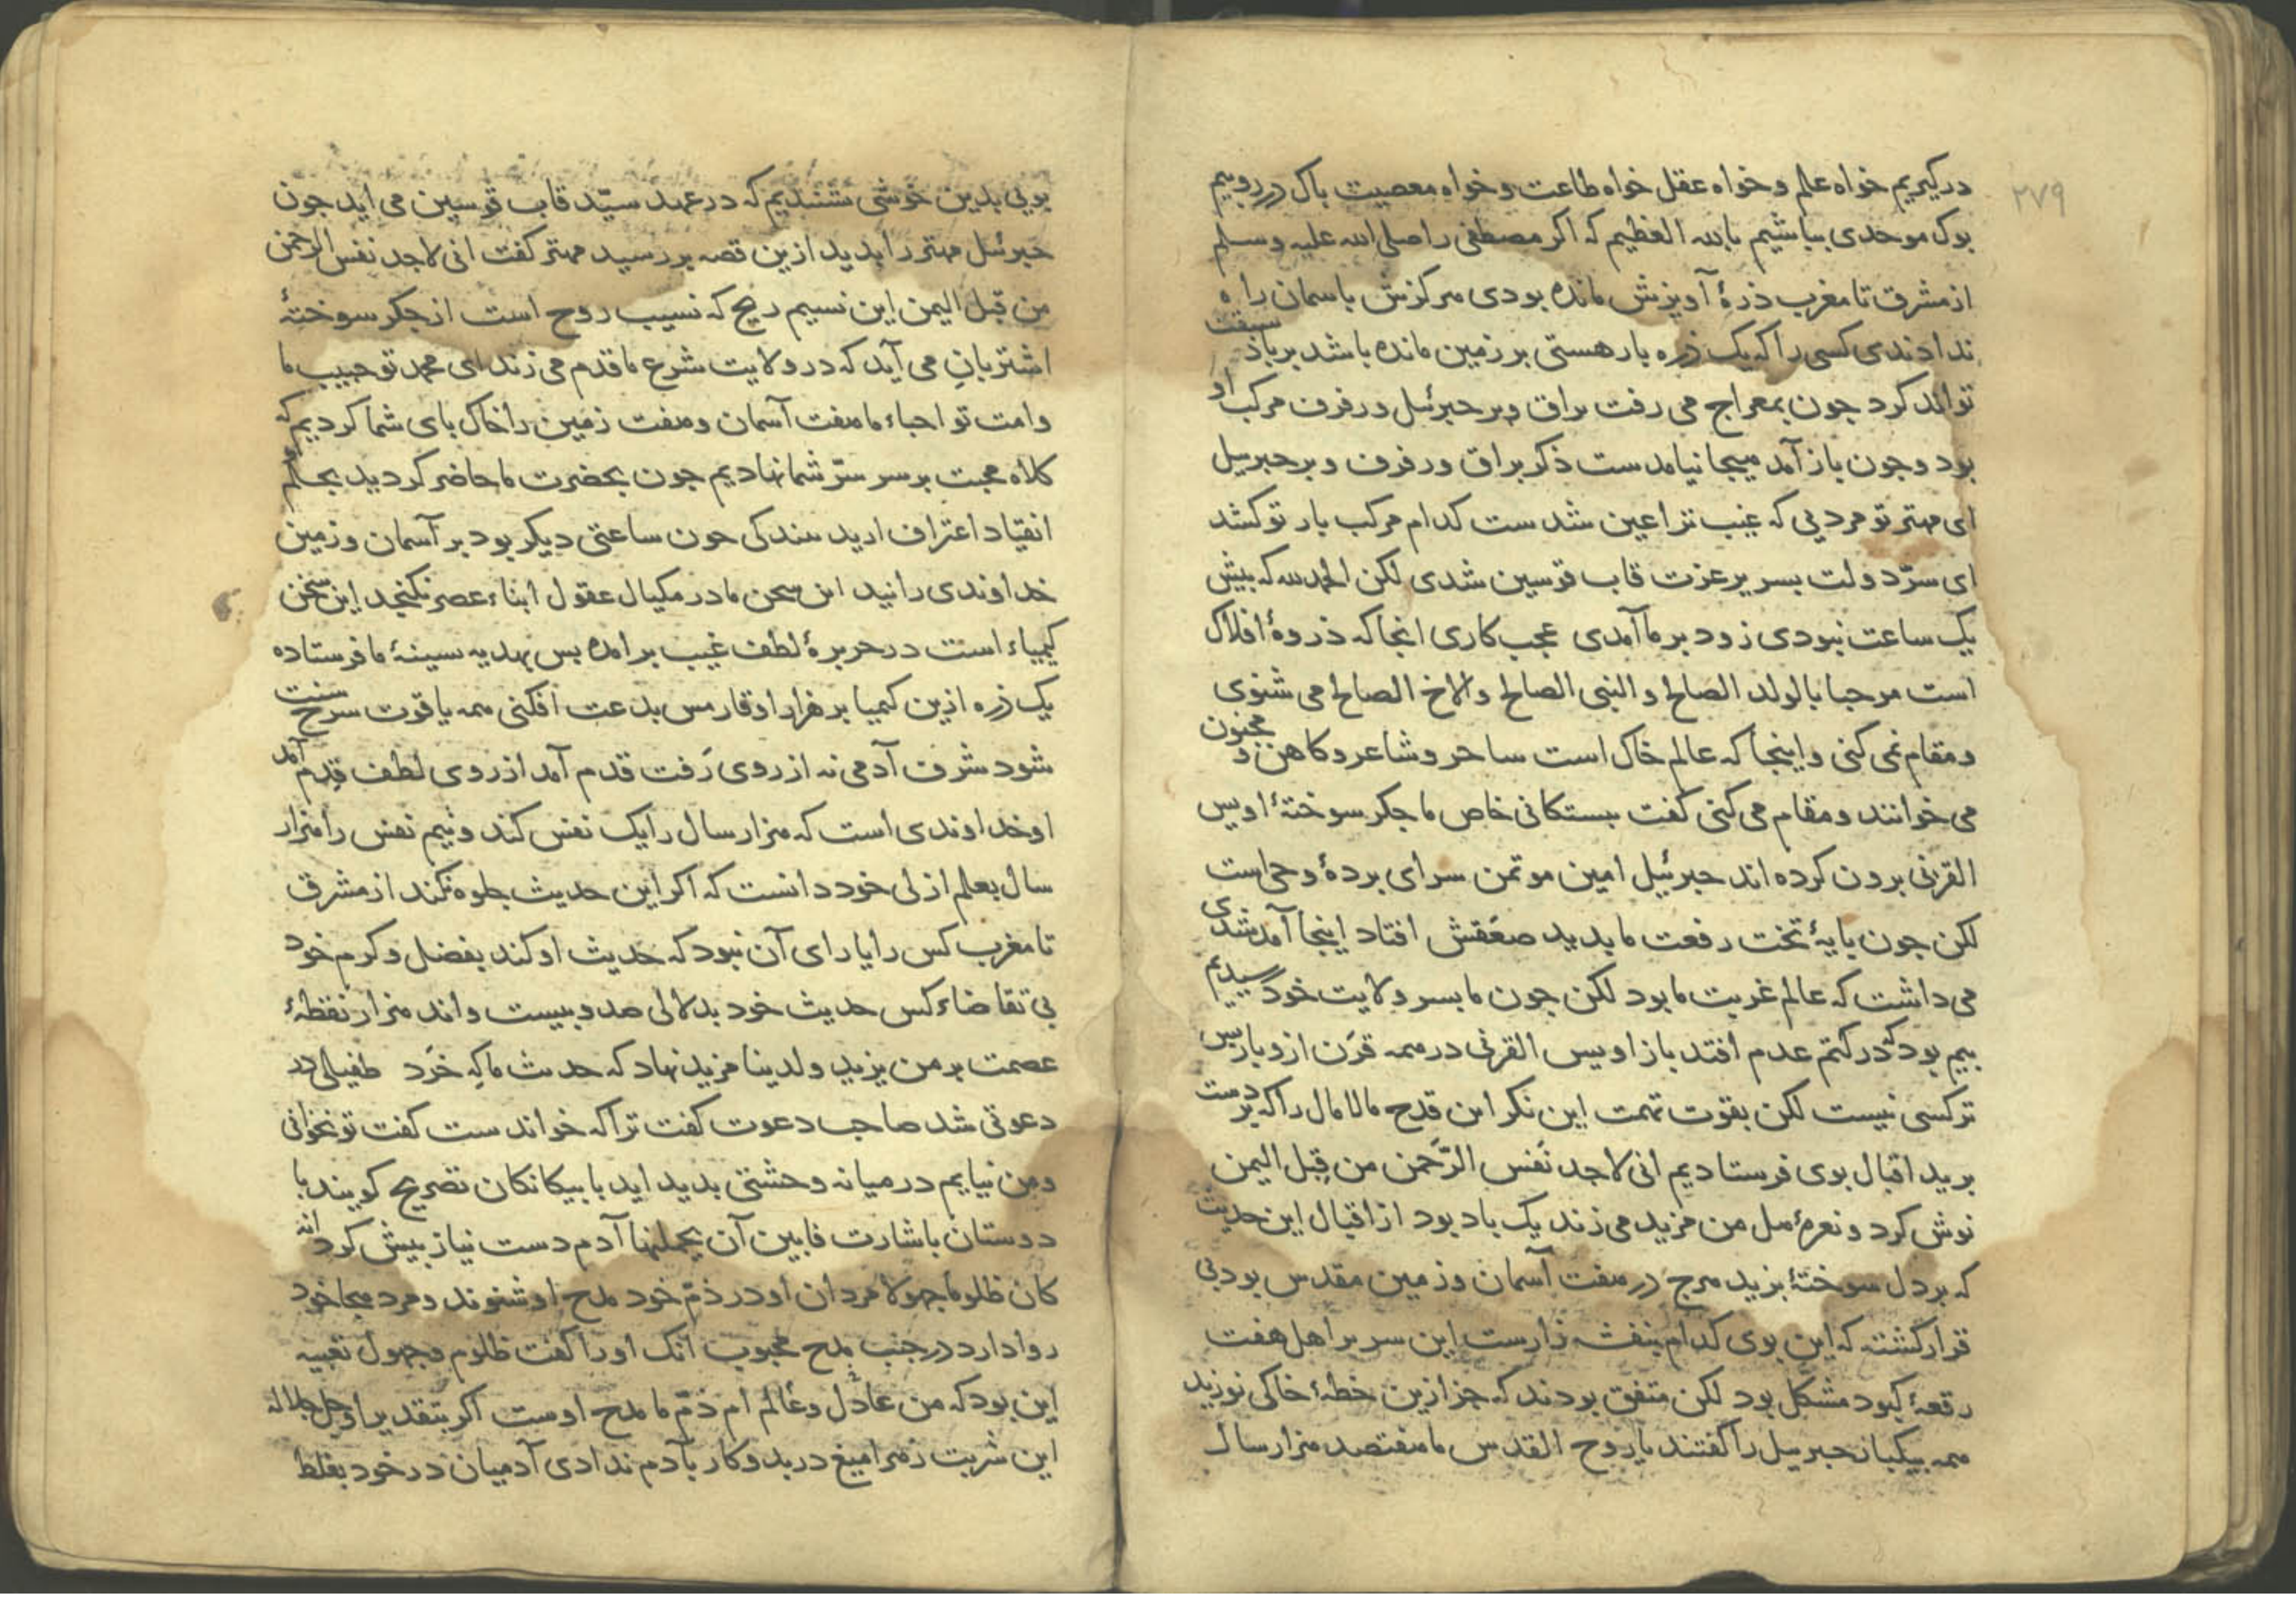 ۲۷۹
درکیریم خواه علم و خواه عقل خواه طاعت و خواه معصیت باک در روبیم
بوک موحدی بباشیم بالله العظیم که اکر مصطفی را صلی الله علیه وسلم
از مشرق تا مغرب ذرهٔ آویزش مانده بودی مرکزش باسمان راه
ندادندی کسی را که یک ذره بار هستی بر زمین مانده باشد بر باذ سبقت
تواند کرد جون بمعراج می رفت براق وپر جبرئیل و رفرف مرکب او
بود وجون باز آمد هیجا نیامدست ذکر براق ورفرف و پر جبرییل
ای مهتر تو مردیی که غیب ترا عین شدست کدام مرکب بار تو کشد
ای سرّ دولت بسریر عزت قاب قوسین شدی لکن الحمدلله که بیش
یک ساعت نبودی زود بر ما آمدی عجب کاری انجا که ذروهٔ افلاک
است مرحبا بالولد الصالح و النبی الصالح والاخ الصالح می شنوی
ومقام نمی کنی واینجا که عالم خاک است ساحر وشاعر وکاهن و مجنون
می خوانند ومقام می کنی کفت بستکانی خاص ما جکر سوختهٔ اویس
القرنی برون کرده اند جبرئیل امین موتمن سرای بردهٔ وحی است
لکن جون بایهٔ تخت رفعت ما بدید صعقش افتاد اینجا آمد شدی
می داشت که عالم غربت ما بود لکن جون ما بسر ولایت خود رسیدیم
بیم بود که در کتم عدم افتد باز اویس القرنی در همه قرن ازو باربس
تر کسی نیست لکن بقوت تهمت این نکر این قدح مالامال را که بر دست
برید اقبال بوی فرستادیم انی لاجد نَفَس الرّحمن من قِبل الیمن
نوش کرد و نعرهٔ هل من مزید می زند یک باد بود از اقبال این حدیث
که بر دل سوختهٔ بزید هرج در هفت آسمان وزمین مقدس بود بی
قرار کشته که این بوی کدام بنفشه زارست این سر بر اهل هفت
رقعهٔ کبود مشکل بود لکن متفق بودند که جز ازین خطهٔ خاکی نوزید
همه بیکبار جبرییل را کفتند یا روح القدس ما هفتصد هزار سال
بویی بدین خوشی نشنیدیم که در عهد سیّد قاب قوسین می اید جون
جبرئیل مهتر را بدید ازین قصه بررسید مهتر کفت انی لاجد نفس الرحمن
من قِبل الیمن این نسیم ریح که نسیب روح است از جکر سوختهٔ
اشتربانِ می آید که در ولایت شرع ما قدم می زند ای محمد تو حبیب ما
وامت تو احباء ما هفت آسمان وهفت زمین را خاک بای شما کردیم که
کلاه محبت بر سر سرّ شما نهادیم جون بحضرت ما حاضر کردید بحلم
انقیاد اعتراف ارید بندکی جون ساعتی دیکر بود بر آسمان وزمین
خداوندی رانید این سخن ما در مکیال عقول ابناء عصر نکنجد این سخن
کیمیاء است در حریرهٔ لطف غیب برامده بس بهدیه سینهٔ ما فرستاده
یک ذره ازین کیمیا بر هزار اوقار مس بدعت افکنی همه یاقوت سرخ سنت
شود شرف آدمی نه از روی رَفت قدم آمد از روی لطف قِدم آمد
او خداوندی است که هزار سال را یک نفس کند ونیم نفس را هزار
سال بعلم ازلی خود دانست که اکر این حدیث جلوه نکند از مشرق
تا مغرب کس را یارای آن نبود که حدیث او کند بفضل وکرم خود
بی تقاضاء کس حدیث خود بدلالی صد وبیست واند هزار نقطهٔ
عصمت بر من یزید ولدینا مزید نهاد که حدیث ما که خَرَد طفیلی در
دعوتی شد صاحب دعوت کفت ترا که خواندست کفت تو نخوانی
ومن نیایم در میانه وحشتی بدید اید با بیکانکان تصریح کویند با
دوستان باشارت فابین آن یحملنها آدم دست نیاز بیش کرد انه
کان ظلوما جهولا مردان او در ذمّ خود مدح او شنوند ومرد هجا خود
روا دارد در جنب مدح محبوب آنک او را کفت ظلوم وجهول تعبیه
این بود که من عادل وعالم ام ذمّ ما مدح اوست اکر بتقدیر او جل جلاله
این شربت زهر امیغ در بد وکار بآدم ندادی آدمیان در خود بغلط